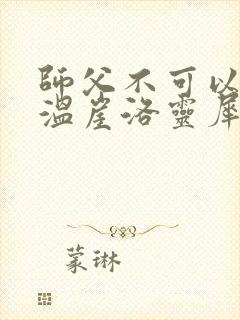 師父不可以
溫崖洛靈犀
蒙琳